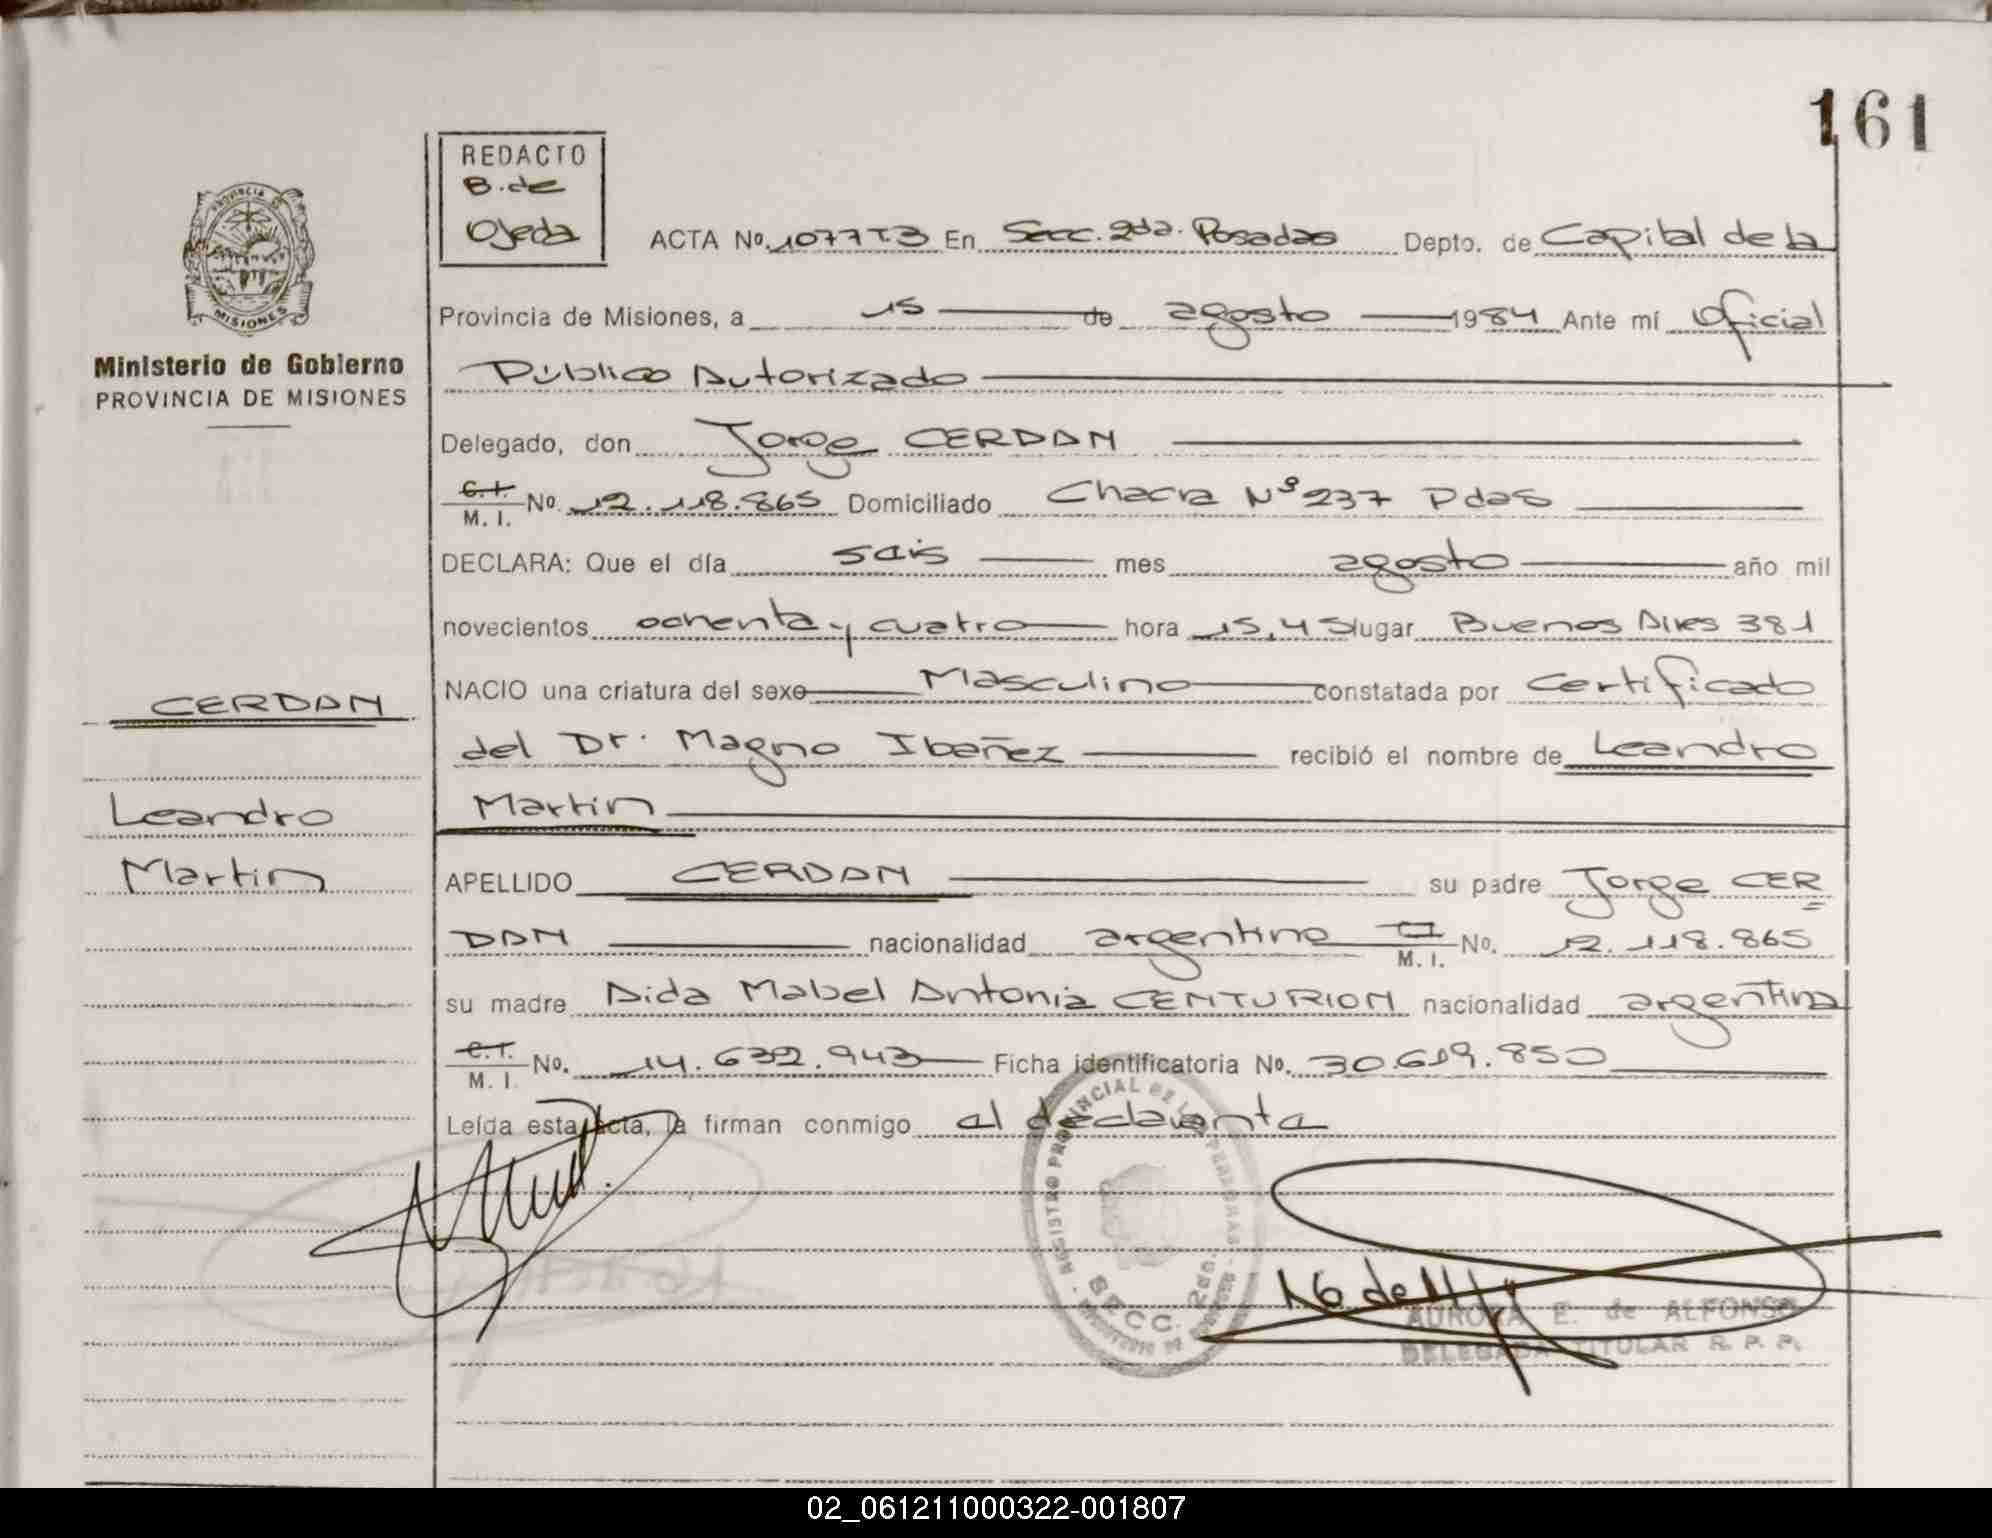 161
REDACTO
B. de
Ojeda
PROVINCIA DE
MISIONES
Ministerio de Gobierno
PROVINCIA DE MISIONES
ACTA No. 1077T.3 En Secc. 2da. Posadas Depto. de Capital de la
Provincia de Misiones, a 15 de agosto 1984 Ante mí Oficial
Público Autorizado
Delegado, don Jorge CERDAN
C.I. M. I. No. 12.118.865 Domiciliado Chacra Nº 237 Pdas
DECLARA: Que el día seis mes agosto año mil
novecientos ochenta y cuatro hora 15,45 lugar Buenos Aires 381
NACIO una criatura del sexo Masculino constatada por Certificado
del Dr. Magno Ibañez recibió el nombre de Leandro
Martin
CERDAN
Leandro
Martin
APELLIDO CERDAN su padre Jorge CER
DAN nacionalidad argentino M. I. No. 12.118.865
su madre Aida Mabel Antonia CENTURION nacionalidad argentina
C.I. M. I. No. 14.632.943 Ficha identificatoria No. 30.619.850
Leída esta acta, la firman conmigo el declarante
REGISTRO PROVINCIAL DE LAS PERSONAS
SECC. 2da.
AURORA E. de ALFONSO
DELEGADA TITULAR R. P. P.
02_061211000322-001807